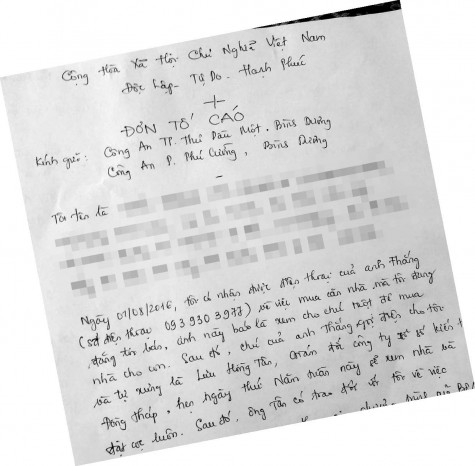 Cộng Hòa Xã Hội Chủ Nghĩa Việt Nam
Độc Lập - Tự Do - Hạnh Phúc
ĐƠN TỐ CÁO
Kính gửi: Công An TP. Thủ Dầu Một, Bình Dương
Công An P. Phú Cường, Bình Dương
Tôi tên là
Ngày 01/03/2016, tôi có nhận được điện thoại của anh Thắng
(số điện thoại 093 930 3977) về việc mua căn nhà mà tôi đang
đăng tin bds, anh này bảo là xem cho chú ruột để mua
nhà cho con. Sau đó, chú của anh Thắng gọi điện cho tôi
và tự xưng là Lưu Hồng Tân, Giám đốc công ty xổ số kiến t
Đồng Tháp, hẹn ngày thứ Năm tuần này sẽ xem nhà và
đặt cọc luôn. Sau đó, ông Tân có trao đổi với tôi về việc